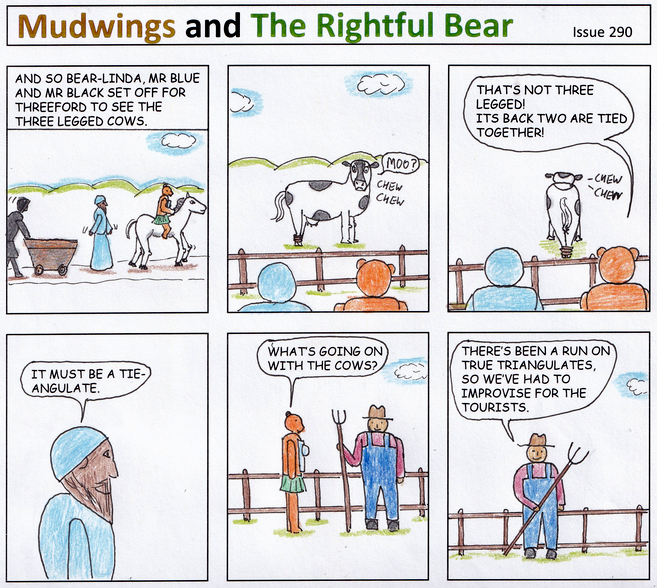 Mudwings and The Rightful Bear
Issue 290
AND SO BEAR-LINDA, MR BLUE
AND MR BLACK SET OFF FOR
THREEFORD TO SEE THE
THREE LEGGED COWS.
MOO?
CHEW
CHEW
THAT'S NOT THREE
LEGGED!
ITS BACK TWO ARE TIED
TOGETHER!
-CHEW
-CHEW
IT MUST BE A TIE-
ANGULATE.
WHAT'S GOING ON
WITH THE COWS?
THERE'S BEEN A RUN ON
TRUE TRIANGULATES,
SO WE'VE HAD TO
IMPROVISE FOR THE
TOURISTS.